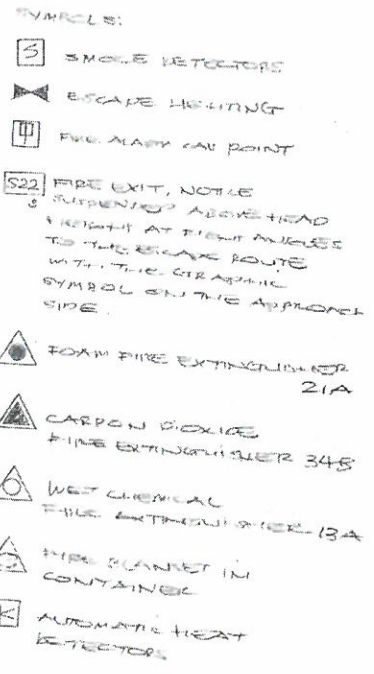 SYMBOLS:
S SMOKE DETECTORS
ESCAPE LIGHTING
FIRE ALARM CALL POINT
S22 FIRE EXIT, NOTICE
SUSPENDED ABOVE HEAD
HEIGHT AT RIGHT ANGLES
TO THE ESCAPE ROUTE
WITH THE GRAPHIC
SYMBOL ON THE APPROACH
SIDE.
FOAM FIRE EXTINGUISHER
21A
CARBON DIOXIDE
FIRE EXTINGUISHER 34B
WET CHEMICAL
FIRE EXTINGUISHER 13A
FIRE BLANKET IN
CONTAINER
AUTOMATIC HEAT
DETECTORS